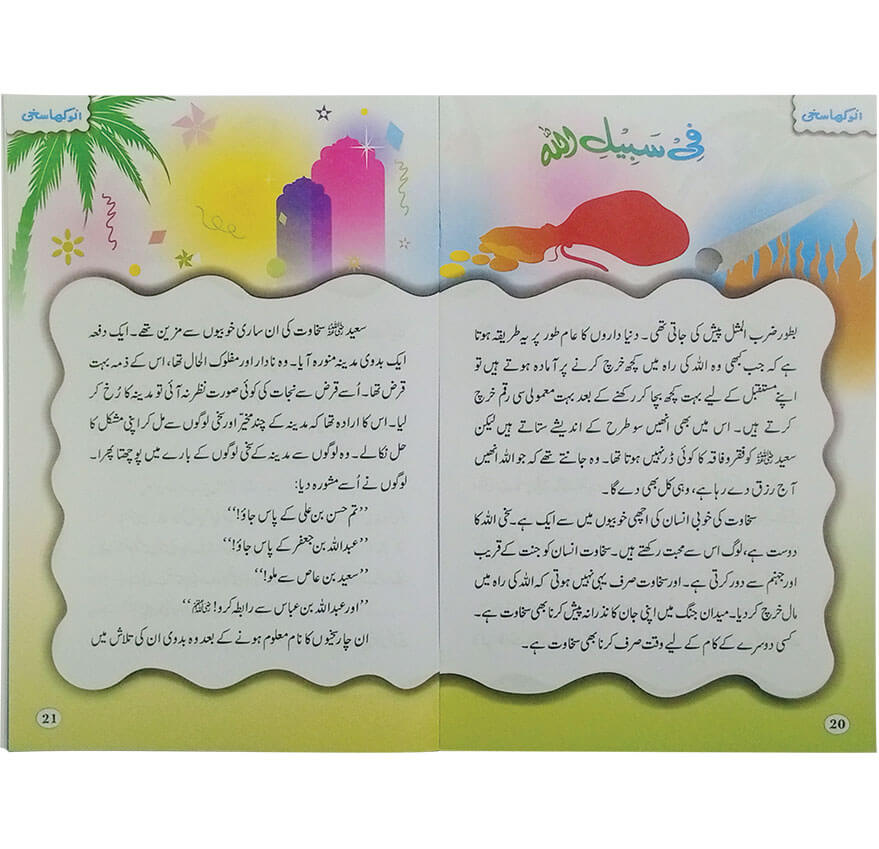 انوکھا سخی
فِیْ سَبِیْلِ اللہ
بطور ضرب المثل پیش کی جاتی تھی۔ دنیا داروں کا عام طور پر یہ طریقہ ہوتا
ہے کہ جب کبھی وہ اللہ کی راہ میں کچھ خرچ کرنے پر آمادہ ہوتے ہیں تو
اپنے مستقبل کے لیے بہت کچھ بچا کر رکھنے کے بعد بہت معمولی سی رقم خرچ
کرتے ہیں۔ اس میں بھی انھیں سو طرح کے اندیشے ستاتے ہیں لیکن
سعید رضی اللہ عنہ کو فقر و فاقہ کا کوئی ڈر نہیں ہوتا تھا۔ وہ جانتے تھے کہ جو اللہ انھیں
آج رزق دے رہا ہے، وہی کل بھی دے گا۔
سخاوت کی خوبی انسان کی اچھی خوبیوں میں سے ایک ہے۔ سخی اللہ کا
دوست ہے، لوگ اس سے محبت رکھتے ہیں۔ سخاوت انسان کو جنت کے قریب
اور جہنم سے دور کرتی ہے۔ اور سخاوت صرف یہی نہیں ہوتی کہ اللہ کی راہ میں
مال خرچ کر دیا۔ میدان جنگ میں اپنی جان کا نذرانہ پیش کرنا بھی سخاوت ہے۔
کسی دوسرے کے کام کے لیے وقت صرف کرنا بھی سخاوت ہے۔
20
انوکھا سخی
سعید رضی اللہ عنہ سخاوت کی ان ساری خوبیوں سے مزین تھے۔ ایک دفعہ
ایک بدوی مدینہ منورہ آیا۔ وہ نادار اور مفلوک الحال تھا، اس کے ذمہ بہت
قرض تھا۔ اُسے قرض سے نجات کی کوئی صورت نظر نہ آئی تو مدینہ کا رُخ کر
لیا۔ اس کا ارادہ تھا کہ مدینہ کے چند مخیّر اور سخی لوگوں سے مل کر اپنی مشکل کا
حل نکالے۔ وہ لوگوں سے مدینہ کے سخی لوگوں کے بارے میں پوچھتا پھرا۔
لوگوں نے اُسے مشورہ دیا:
”تم حسن بن علی کے پاس جاؤ!“
”عبداللہ بن جعفر کے پاس جاؤ!“
”سعید بن عاص سے ملو!“
”اور عبداللہ بن عباس سے رابطہ کرو! رضی اللہ عنہم“
ان چار سخیوں کا نام معلوم ہونے کے بعد وہ بدوی ان کی تلاش میں
21